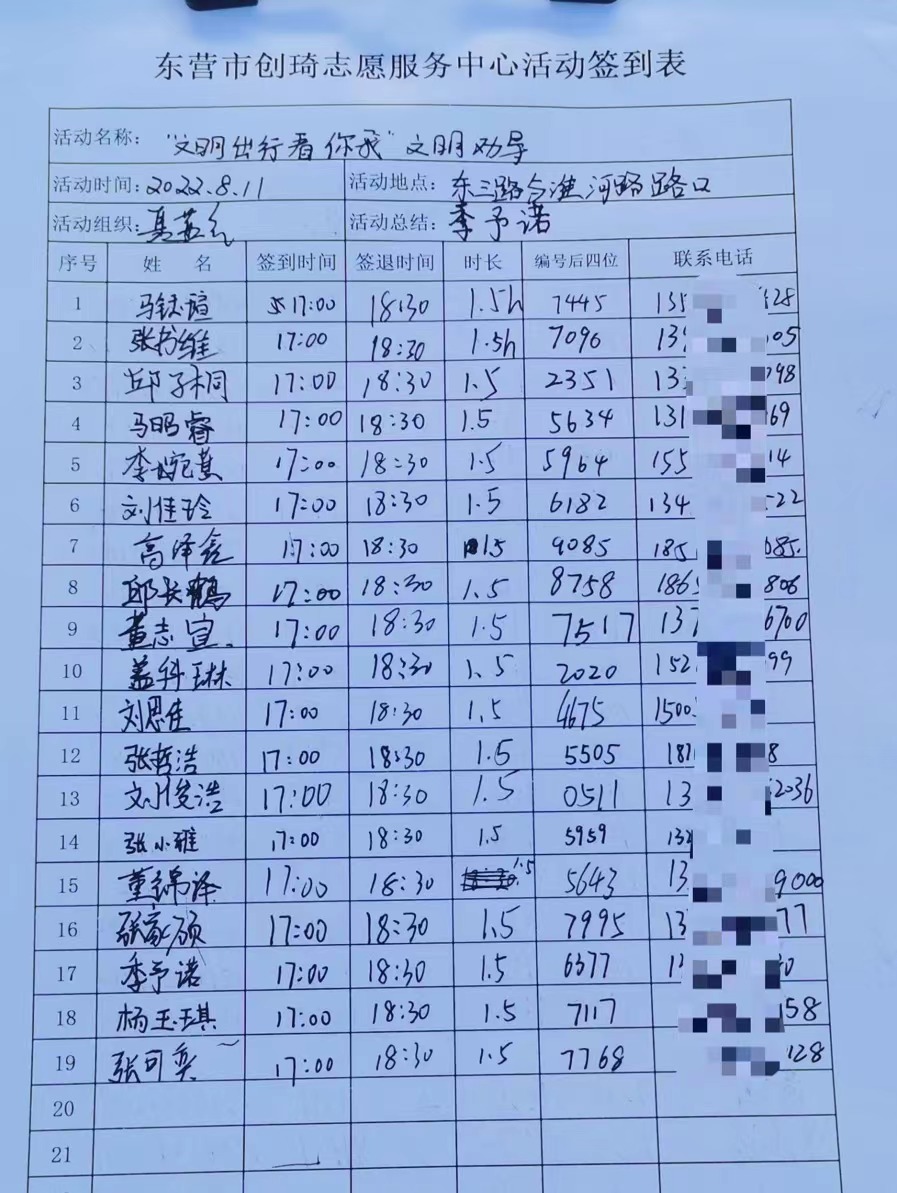 东营市创琦志愿服务中心活动签到表
活动名称： "文明出行看你我"文明劝导
活动时间：2022.8.11 活动地点：东三路与淮河路路口
活动组织： 活动总结：李予诺
序号 姓 名 签到时间 签退时间 时长 编号后四位 联系电话
1 马铱瑄 17:00 18:30 1.5h 7445 135 328
2 张书维 17:00 18:30 1.5h 7096 139 005
3 邱子桐 17:00 18:30 1.5 2351 133 798
4 马明睿 17:00 18:30 1.5 5634 131 69
5 李婉萁 17:00 18:30 1.5 5964 155 14
6 刘佳玲 17:00 18:30 1.5 6182 134 522
7 高泽鑫 17:00 18:30 1.5 9085 185 085
8 邱长鹤 17:00 18:30 1.5 8758 186 806
9 董志宣 17:00 18:30 1.5 7517 137 6700
10 盖科琳 17:00 18:30 1.5 2020 152 99
11 刘恩佳 17:00 18:30 1.5 4675 1500
12 张哲浩 17:00 18:30 1.5 5505 187 8
13 刘俊浩 17:00 18:30 1.5 0511 13 2036
14 张小雅 17:00 18:30 1.5 5959 132
15 董锦泽 17:00 18:30 1.5 5643 13 9000
16 张家硕 17:00 18:30 1.5 7995 13 77
17 李予诺 17:00 18:30 1.5 6377 1 0
18 杨玉琪 17:00 18:30 1.5 7117 158
19 张可奕 17:00 18:30 1.5 7768 128
20
21